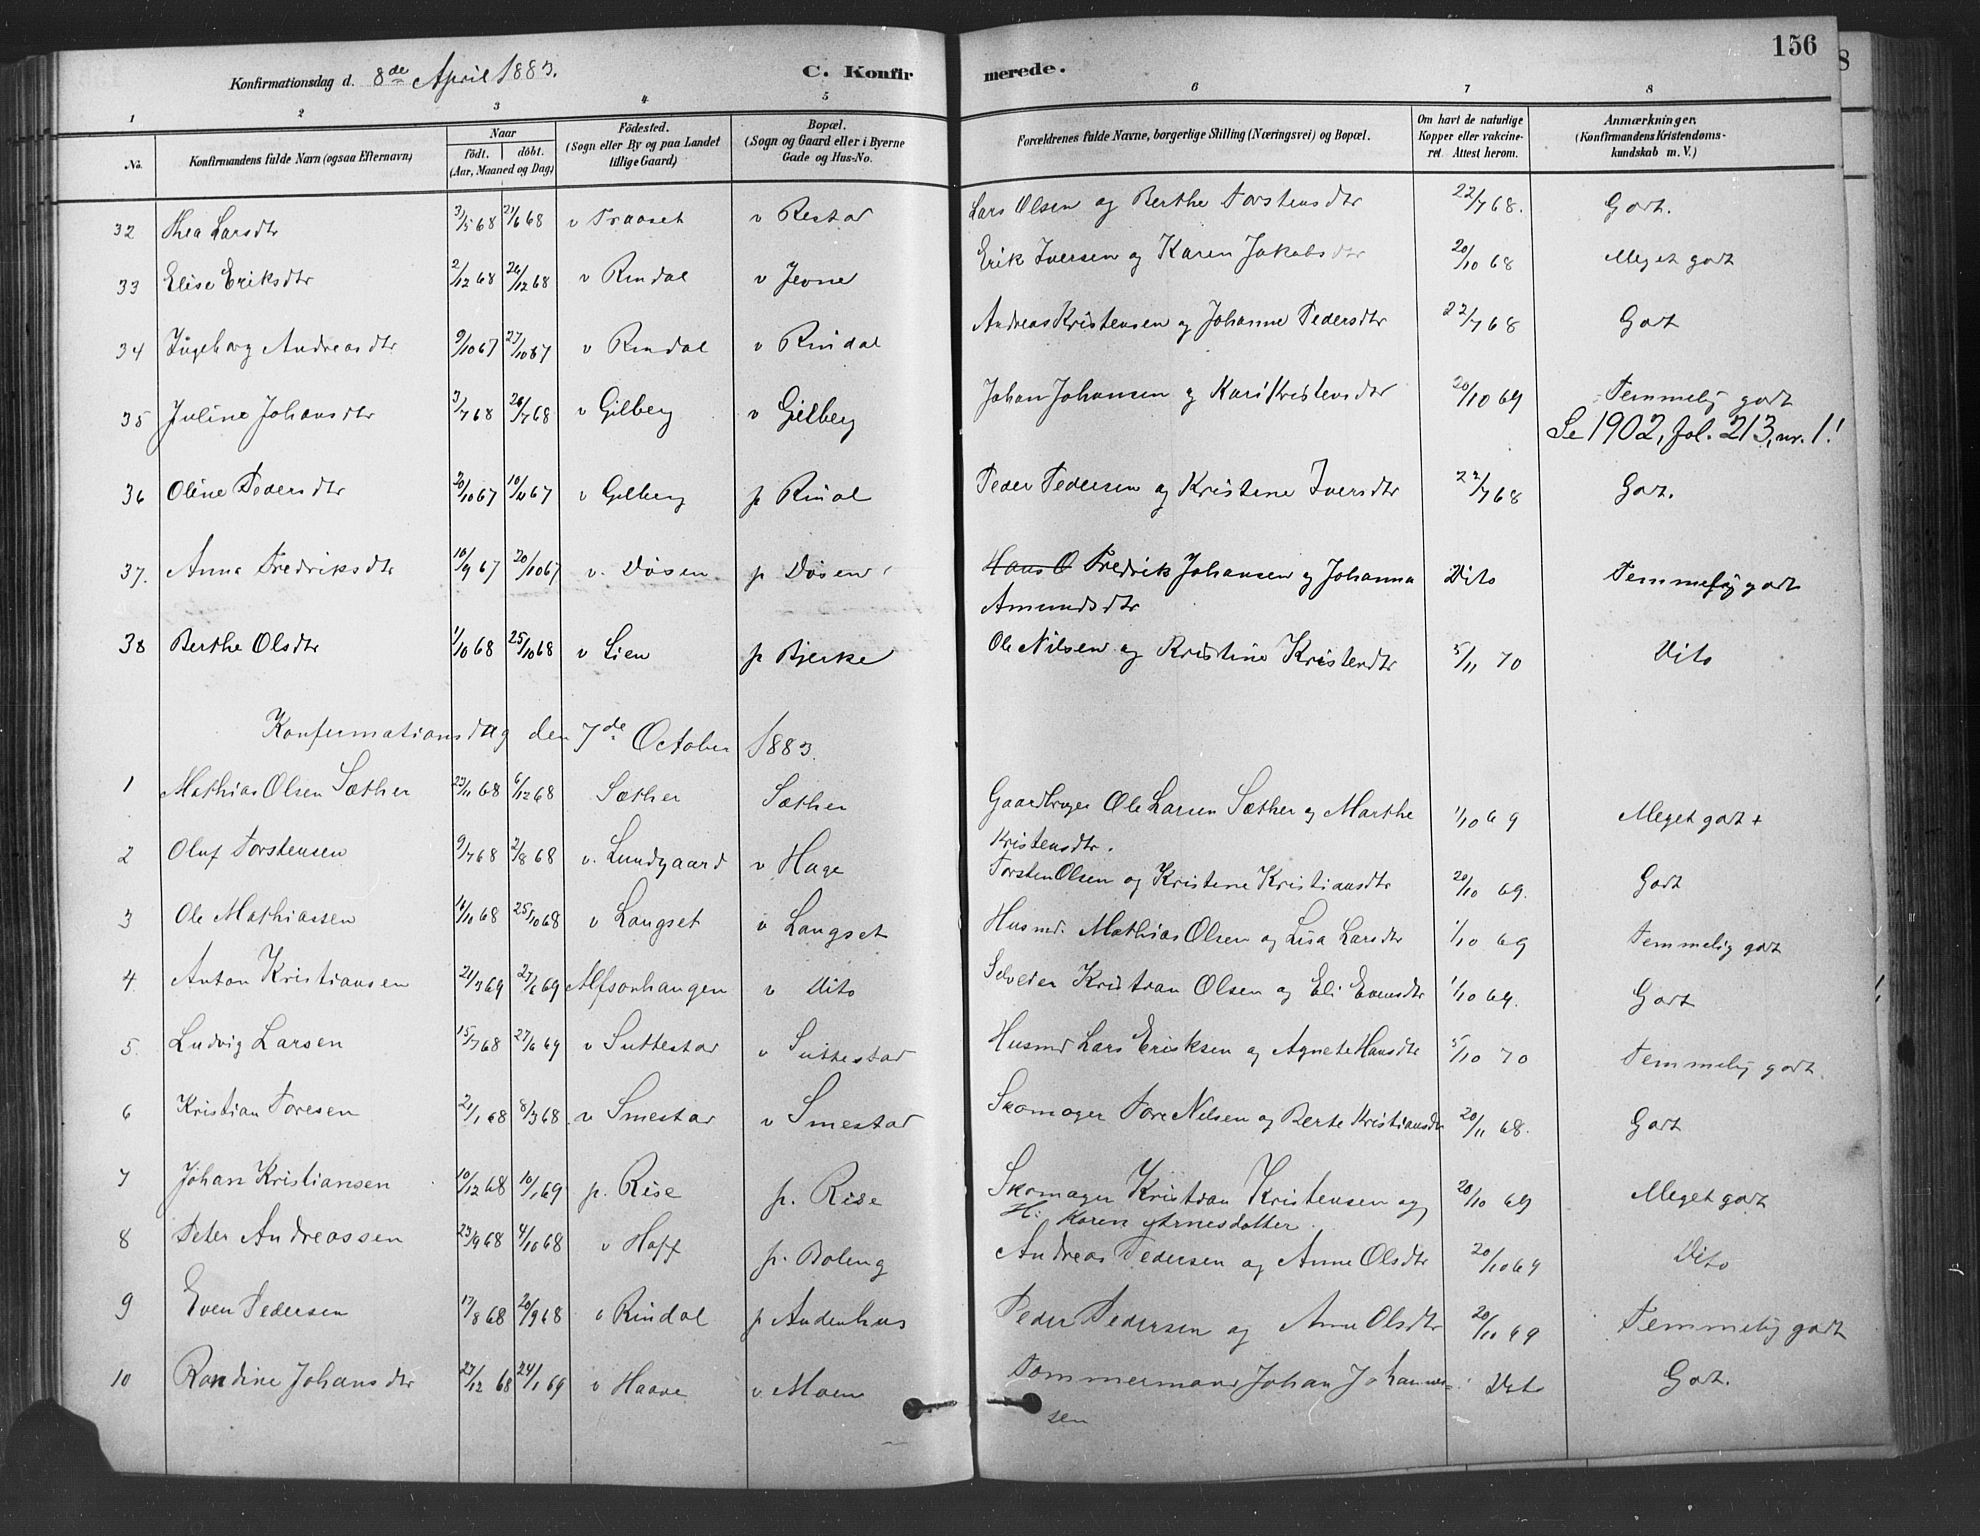 156
Konfirmationsdag d. 8de April 1883. C. Konfirmerede.
1 2 3 4 5 6 7 8
No. Konfirmandens fulde Navn (ogsaa Efternavn) Naar födt. döbt. (Aar, Maaned og Dag) Födested. (Sogn eller By og paa Landet tillige Gaard) Bopæl. (Sogn og Gaard eller i Byerne Gade og Hus-No. Forældrenes fulde Navne, borgerlige Stilling (Næringsvei) og Bopæl. Om havt de naturlige Kopper eller vakcineret. Attest herom. Anmærkninger. (Konfirmandens Kristendomskundskab m. V.)
32 Thea Larsdtr 3/5 68 21/6 68 v Traaset v Restad Lars Olsen og Berthe Torstensdtr 22/7 68. Godt.
33 Elise Eriksdtr 2/12 68 26/12 68 v Rindal v Jevne Erik Iversen og Karen Jakobsdtr 20/10 68 Meget godt
34 Ingeborg Andreasdtr 9/10 67 27/10 67 v Rindal v Rindal Andreas Kristensen og Johanne Pedersdtr 22/7 68 Godt
35 Juline Johansdtr 3/7 68 26/7 68 v Gilberg v Gilberg Johan Johansen og Kari Kristensdtr 20/10 69 Temmelig godt
Se 1902, fol. 213, nr. 1!
36 Oline Pedersdtr 20/10 67 10/11 67 v Gilberg p Rindal Peder Pedersen og Kristine Iversdtr 22/7 68 Godt.
37. Anna Fredriksdtr 10/9 67 20/10 67 v. Døsen p Døsen Hans O Fredrik Johansen og Johanna Dito Temmelig godt
Amundsdtr
38 Berthe Olsdtr 1/10 68 25/10 68 v Lien p Bjerke Ole Nilsen og Kristine Kristendtr 5/11 70 Dito
Konfirmationsdag den 7de October 1883.
1 Mathias Olsen Sæther 23/11 68 6/12 68 Sæther Sæther Gaardbruger Ole Larsen Sæther og Marthe 1/10 69 Meget godt +
Kristensdtr.
2 Oluf Torstensen 9/7 68 2/8 68 v. Lundgaard v Hage Torsten Olsen og Kristine Kristiansdtr 20/10 69. Godt
3 Ole Mathiassen 16/10 68 25/10 68 v Langset v Langset Husmd. Mathias Olsen og Lisa Larsdtr 1/10 69 Temmelig godt
4 Anton Kristiansen 21/3 69 27/6 69 Alfsonhaugen v Dito Selveier Kristian Olsen og Eli Evensdtr 1/10 69. Godt
5. Ludvig Larsen 15/7 68 27/6 69 v Suttestad v Suttestad Husmd Lars Eriksen og Agnete Hansdtr 5/10 70 Temmelig godt.
6 Kristian Toresen 21/1 68 8/3 68 v Smestad v Smestad Skomager Tore Nilsen og Berte Kristiansdtr 20/11 68. Godt
7 Johan Kristiansen 10/12 68 10/1 69 p. Rise p. Rise Skomager Kristian Kristensen og 20/10 69 Meget godt
H: Karen Arnesdatter.
8 Peter Andreassen 23/9 68 4/10 68 v Hoff p. Boleng Andreas Pedersen og Anne Olsdtr 20/10 69 Dito
9 Even Pedersen 17/8 68 20/9 68 v Rindal p Audenhus Peder Pedersen og Anne Olsdtr 20/11 69 Temmelig godt
10 Randine Johansdtr 27/12 68 24/1 69 v Haave v Moen Tommermand Johan Johannes= Dito Godt.
sen